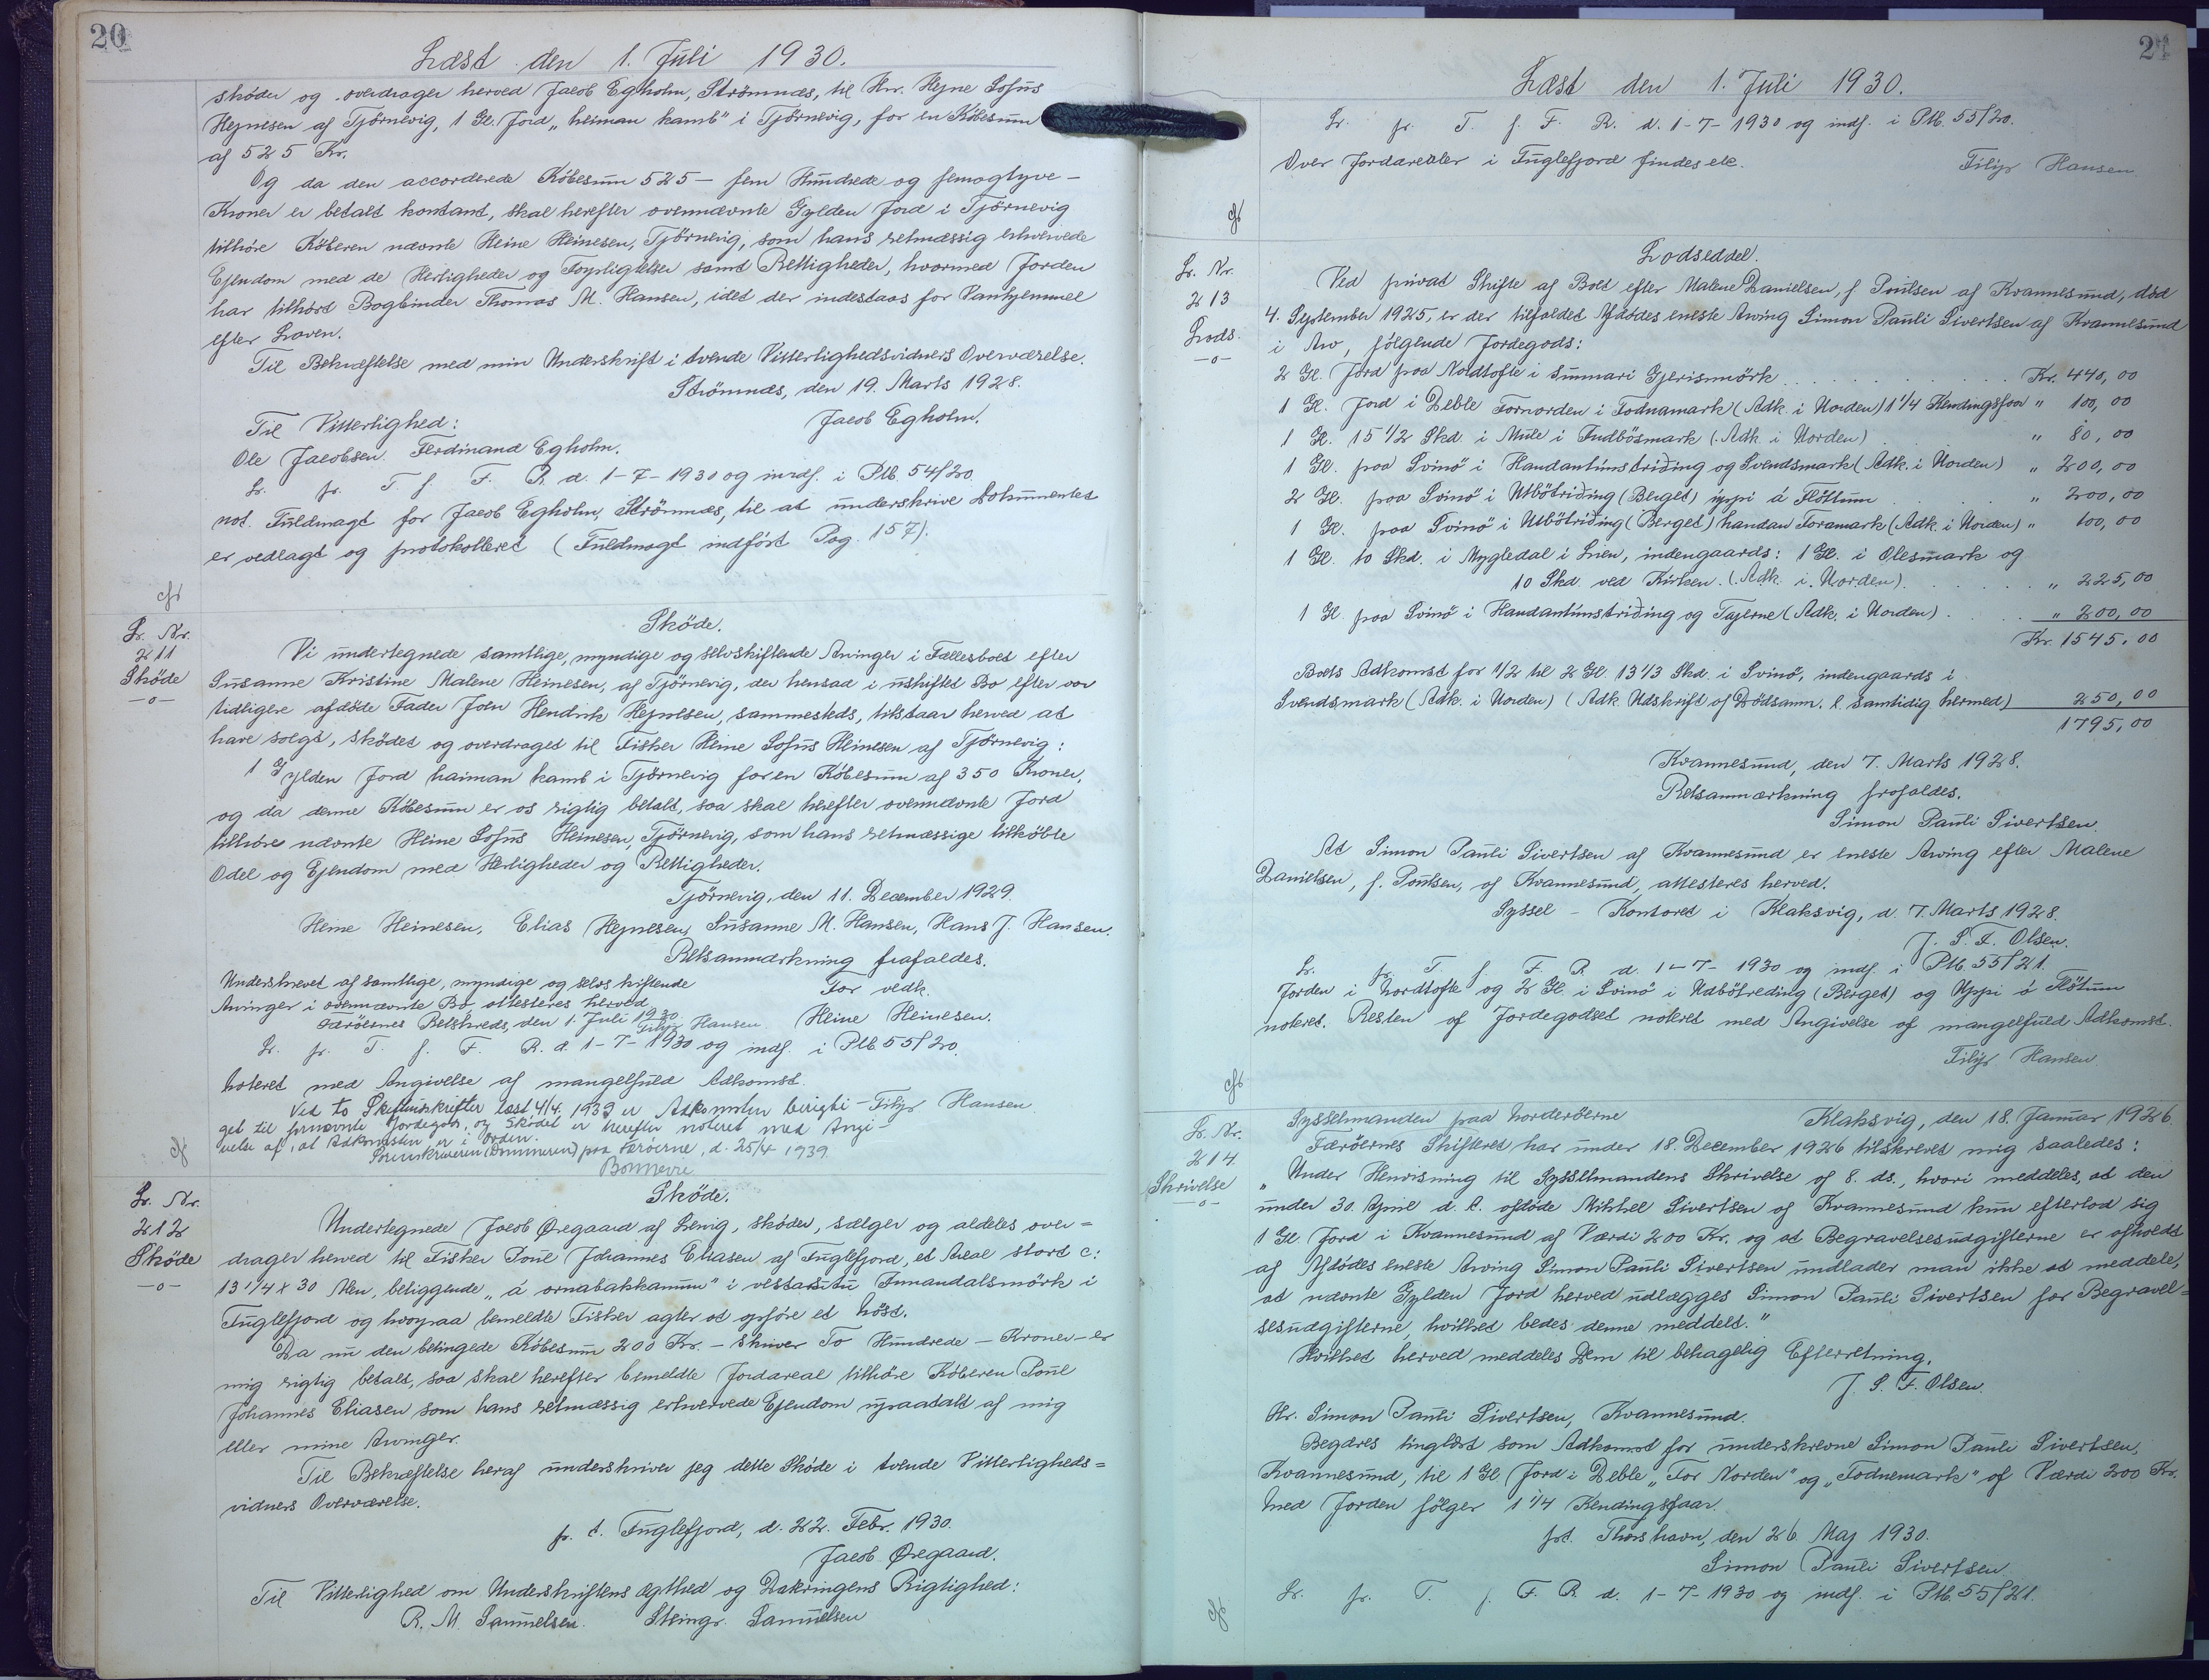 20
Læst den 1. Juli 1930.
skøder og overdrager herved Jacob Egholm, Strömnæs, til Hr. Hejne Sofus
Hejnesen af Tjörnevig, 1 Gl. Jord „heiman kamb" i Tjörnevig, for en Köbesum
af 525 Kr.
Og da den accorderede Köbesum 525 — fem Hundrede og femogtyve —
Kroner er betalt kontant, skal herefter ovennævnte Gylden Jord i Tjörnevig
tilhöre Köberen nævnte Heine Heinesen, Tjörnevig, som hans retmæssig erhvervede
Ejendom med de Herligheder og Forpligtelser samt Rettigheder, hvormed Jorden
har tilhört Bogbinder Thomas M. Hansen, idet der indestaas for Vanhjemmel
efter Loven.
Til Bekræftelse med min Underskrift i tvende Vitterlighedsvidners Overværelse.
Strömnæs, den 19. Marts 1928.
Til Vitterlighed: Jacob Egholm.
Ole Jacobsen. Ferdinand Egholm.
Lr. pr. T. f. F. R. d. 1-7-1930 og indf. i Ptb. 54/20
not. Fuldmagt for Jacob Egholm, Strömnæs, til at underskrive Dokumentet
er vedlagt og protokolleret (Fuldmagt indfört Pag. 157).
Lr. Nr.
211
Sköde
—o—
Sköde.
Vi undertegnede samtlige, myndige og selvskiftende Arvinger i Fællesboet efter
Susanne Kristine Malene Heinesen, af Tjörnevig, der hensad i uskiftet Bo efter vor
tidligere afdöde Fader Joen Hendrik Hejnesen, sammesteds, tilstaar herved at
have solgt, sködet og overdraget til Fisker Heine Sofus Heinesen af Tjörnevig:
1 Gylden Jord haiman kamb i Tjörnevig for en Köbesum af 350 Kroner,
og da denne Köbesum er os rigtig betalt, saa skal herefter ovennævnte Jord
tilhöre nævnte Heine Sofus Heinesen, Tjörnevig, som hans retmæssige tilköbte
Odel og Ejendom med Herligheder og Rettigheder.
Tjörnevig, den 11. December 1929.
Heine Heinesen, Elias Hejnesen, Susanne M. Hansen, Hans J. Hansen.
Retsanmærkning frafaldes.
Underskrevet af samtlige, myndige og selvskiftende For vedk.
Arvinger i ovennævnte Bo, attesteres herved
Færöernes Retskreds, den 1. Juli 1930 Heine Heinesen.
Filip Hansen
Lr. pr. T. f. F. R. d. 1-7-1930 og indf. i Ptb. 55/20.
Noteret med Angivelse af mangelfuld Adkomst.
Filip Hansen
Ved to Skifteudskrifter læst 4/4. 1939 er Adkomsten berigti-
get til fornævnte Jordegods, og Sködet er herefter noteret med Angi-
velse af, at Adkomsten er i Orden.
Sorenskriveren (Dommeren) paa Færöerne, d. 25/4 1939.
Bonnevie
Lr. Nr.
212
Sköde
—o—
Sköde.
Undertegnede Jacob Øregaard af Lervig, sköder, sælger og aldeles over=
drager herved til Fisker Poul Johannes Eliasen af Fuglefjord, et Areal stort c:
13 1/4 x 30 Alen, beliggende „á ornabakkanum" i vestastu Innandalsmörk i
Fuglefjord og hvorpaa bemeldte Fisker agter at opföre et Nöst.
Da nu den betingede Köbesum 200 Kr. — skriver To Hundrede — Kroner — er
mig rigtig betalt, saa skal herefter bemeldte Jordareal tilhöre Köberen Poul
Johannes Eliasen som hans retmæssig erhvervede Ejendom upaatalt af mig
eller mine Arvinger.
Til Bekræftelse heraf underskriver jeg dette Sköde i tvende Vitterligheds=
vidners Overværelse.
p. t. Fuglefjord, d. 22. Febr. 1930.
Jacob Øregaard.
Til Vitterlighed om Underskriftens Ægthed og Dateringens Rigtighed:
R. M. Samuelsen. Steingr. Samuelsen
21
Læst den 1. Juli 1930.
Lr. pr. T. f. F. R. d. 1-7-1930 og indf. i Ptb. 55/20.
Over Jordarealer i Fuglefjord findes etc.
Filip Hansen
Lr. Nr.
213
Lods.
—o—
Lodseddel.
Ved privat Skifte af Boet efter Malene Danielsen, f. Poulsen af Kvannesund, död
4. September 1925, er der tilfaldet Afdödes eneste Arving Simon Pauli Sivertsen af Kvannesund
i Arv, fölgende Jordegods:
2 Gl. Jord paa Nordtofte i Summari Gjerismörk Kr. 440,00
1 Gl. Jord i Deble Fornorden i Fodnamark (Adk. i Norden) 1 1/4 Kendingsfaar " 100,00
1 Gl. 15 1/2 Skd. i Mule i Sudbösmark (Adk. i Norden) " 80,00
1 Gl. paa Svinö i Handantúnstriðing og Svendsmark (Adk. i Norden) " 200,00
2 Gl. paa Svinö i Utbötriðing (Berget) uppi á Flöttum " 200,00
1 Gl. paa Svinö i Utbötriðing (Berget) handan Foramark (Adk. i Norden) " 100,00
1 Gl. 10 Skd. i Mygledal i Lien, indengaards: 1 Gl. i Olesmark og
10 Skd. ved Kirken. (Adk. i Norden). " 225,00
1 Gl. paa Svinö i Handantúnstriðing og Tajerne (Adk. i Norden) " 200,00
Kr. 1545.00
Boets Adkomst for 1/2 til 2 Gl. 13 1/3 Skd. i Svinö, indengaards i
Svendsmark (Adk. i Norden) (Adk. Udskrift af Dödsanm. l. samtidig hermed) 250,00
1795,00
Kvannesund, den 7. Marts 1928.
Retsanmærkning frafaldes.
Simon Pauli Sivertsen.
At Simon Pauli Sivertsen af Kvannesund er eneste Arving efter Malene
Danielsen, f. Poulsen, af Kvannesund, attesteres herved.
Syssel - Kontoret i Klaksvig, d. 7. Marts 1928.
J. S. F. Olsen.
Lr. pr. T. f. F. R. d. 1-7-1930 og indf. i Ptb. 55/21.
Jorden i Nordtofte og 2 Gl. i Svinö i Udbötreding (Berget) og Uppi á Flötum
noteret. Resten af Jordegodset noteret med Angivelse af mangelfuld Adkomst.
Filip Hansen.
Lr. Nr.
214.
Skrivelse
—o—
Sysselmanden paa Norderöerne Klaksvig, den 18. Januar 1926.
Færöernes Skifteret har under 18. December 1926 tilskrevet mig saaledes:
„Under Henvisning til Sysselmandens Skrivelse af 8. ds., hvori meddeles, at den
under 30. April d. A. afdöde Mikkel Sivertsen af Kvannesund kun efterlod sig
1 Gl Jord i Kvannesund af Værdi 200 Kr. og at Begravelsesudgifterne er afholdt
af Afdödes eneste Arving Simon Pauli Sivertsen undlader man ikke at meddele,
at nævnte Gylden Jord herved udlægges Simon Pauli Sivertsen for Begravel=
sesudgifterne, hvilket bedes denne meddelt."
Hvilket herved meddeles Dem til behagelig Efterretning.
J. S. F. Olsen.
Hr. Simon Pauli Sivertsen, Kvannesund.
Begæres tinglæst som Adkomst for underskrevne Simon Pauli Sivertsen,
Kvannesund, til 1 Gl Jord i Deble „For Norden" og „Fodnemark" af Værdi 200 Kr.
Med Jorden fölger 1 1/4 Kendingsfaar.
pt. Thorshavn, den 26 Maj 1930.
Simon Pauli Sivertsen
Lr. pr. T. f. F. R. d. 1-7-1930 og indf. i Ptb. 55/21.